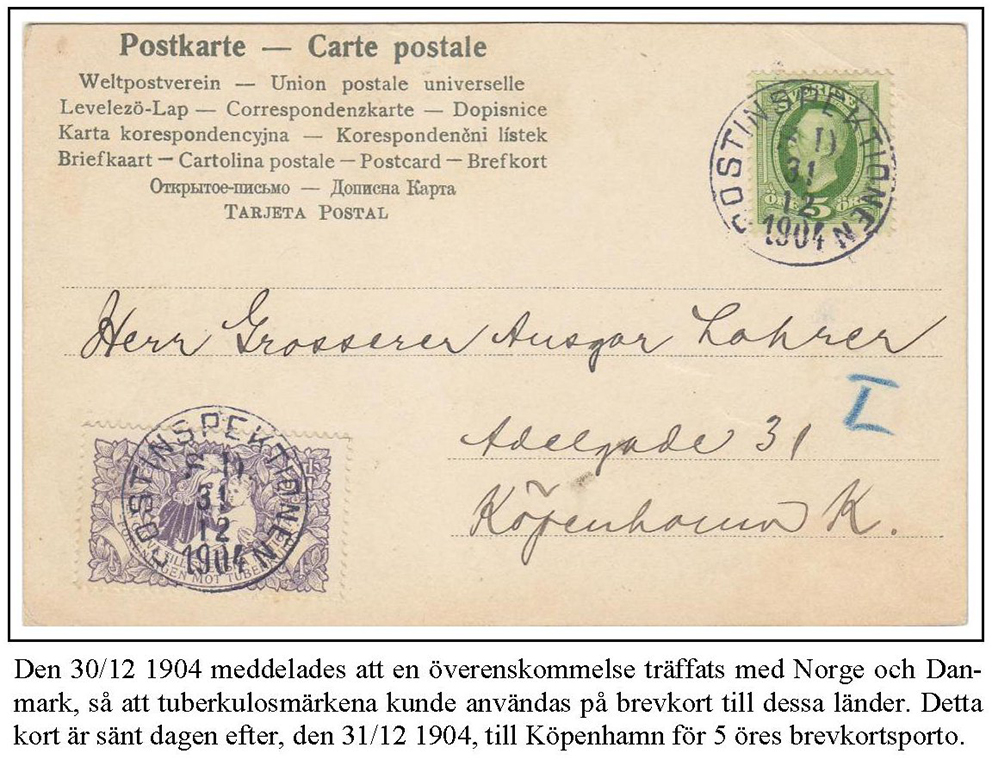 Postkarte — Carte postale
Weltpostverein — Union postale universelle
Levelezö-Lap — Correspondenzkarte — Dopisnice
Karta korespondencyjna — Korespondenčni lístek
Briefkaart — Cartolina postale — Postcard — Brefkort
Открытое-письмо — Дописна Карта
TARJETA POSTAL
SVERIGE
ÖRE 5 ÖRE
POSTINSPEKTIONEN
31
12
1904
Herr Grosserer Ansgar Lohrer
I
Adelgade 31
Köpenhamn K.
POSTINSPEKTIONEN
31
12
1904
MOT
Den 30/12 1904 meddelades att en överenskommelse träffats med Norge och Dan-
mark, så att tuberkulosmärkena kunde användas på brevkort till dessa länder. Detta
kort är sänt dagen efter, den 31/12 1904, till Köpenhamn för 5 öres brevkortsporto.